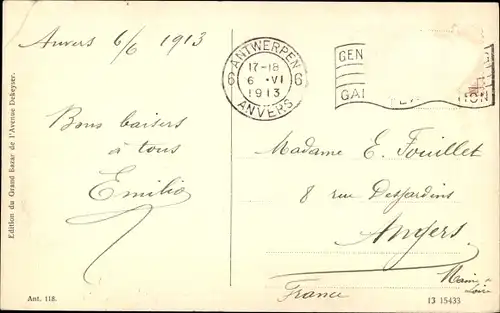 Anvers 6/6 1913
Bons baisers
à tous
Emilio
Edition du Grand Bazar de l'Avenue Dekeyser.
Ant. 118.
ANTWERPEN
17-18
6 6 ·VI 6
1913
ANVERS
GEN
GAI
ION
Madame E. Fouillet
8 rue Desjardins
Angers
Maine &
Loire
France
13 15433